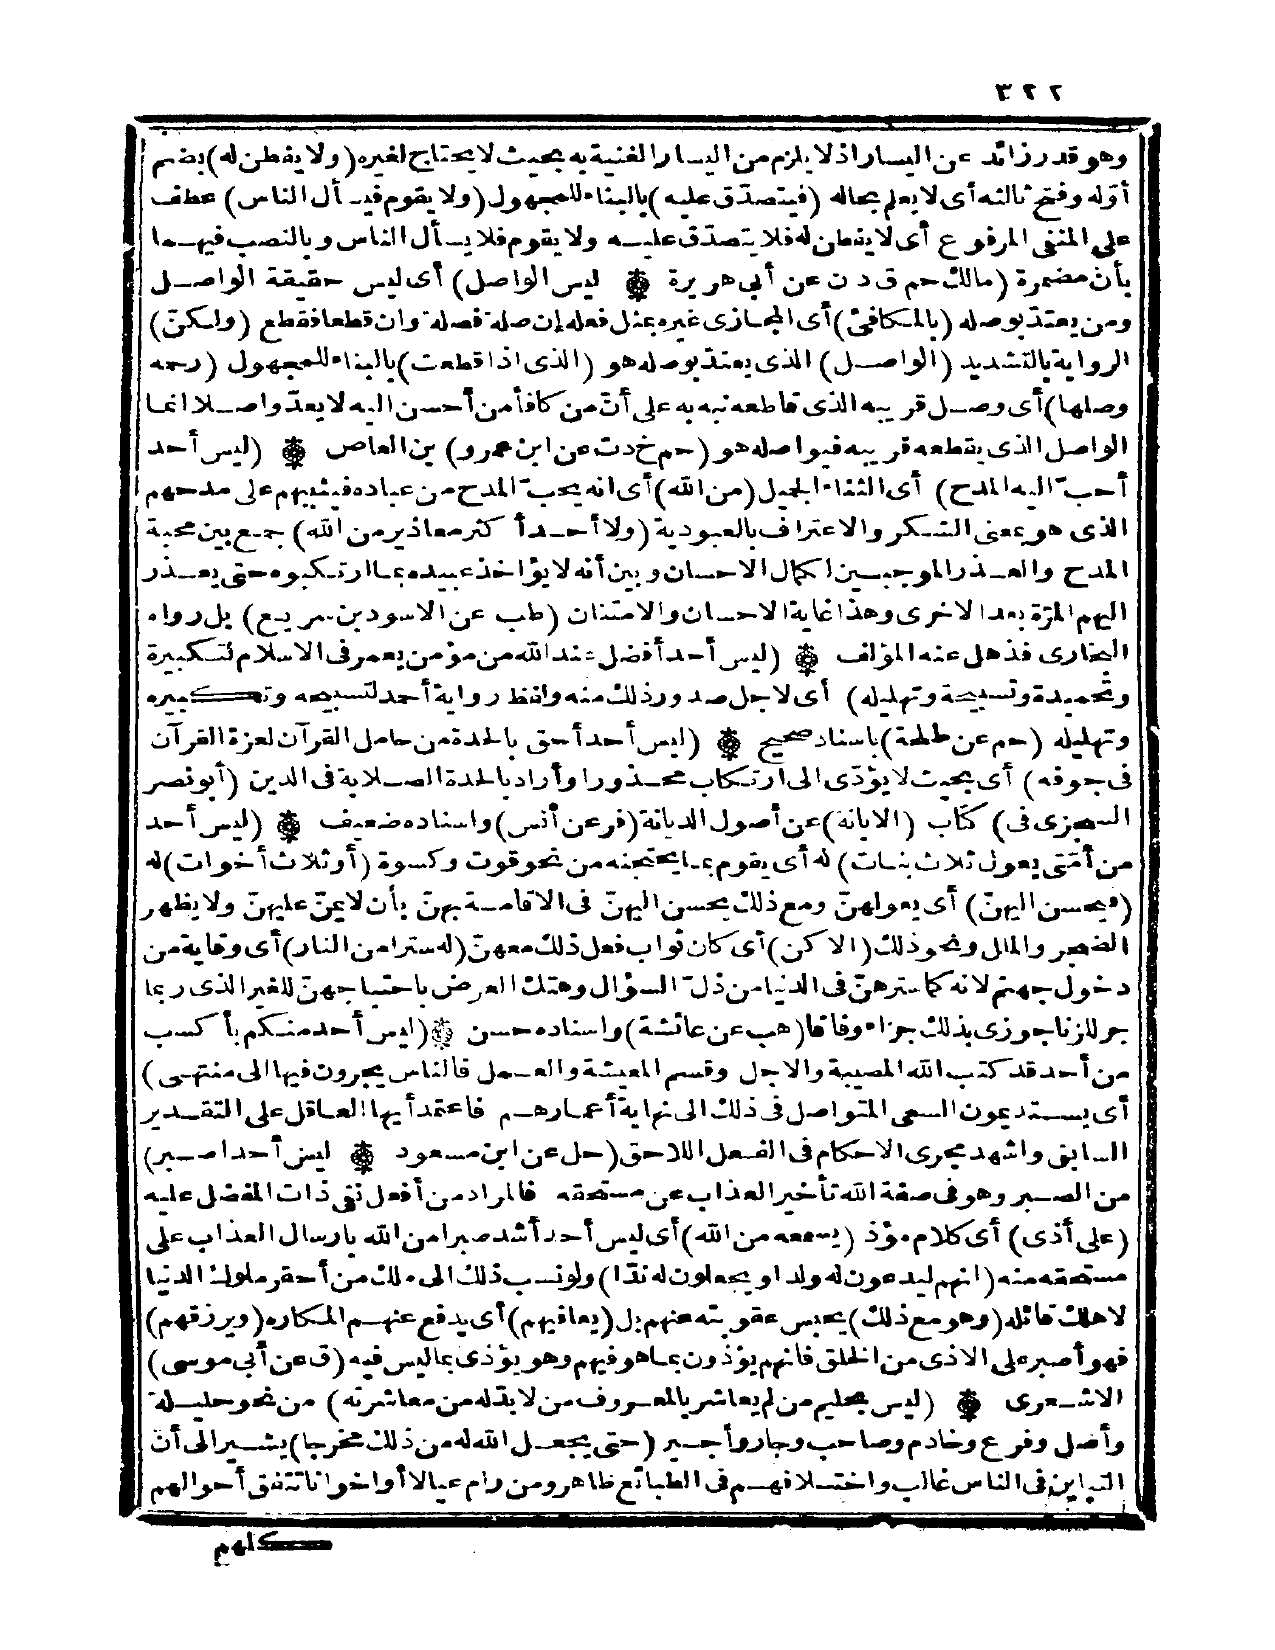 ٣٢٢
وهو قدر زائد عن اليسار اذ لا يلزم من اليسار الغنية به بحيث لا يحتاج لغيره (ولا يفطن له) بضم
أوّله وفتح ثالثه أى لا يعلم بحاله (فيتصدّق عليه) بالبناء للمجهول (ولا يقوم فيسأل الناس) عطف
على المنفى المرفوع أى لا يفطن له فلا يتصدّق عليه ولا يقوم فلا يسأل الناس وبالنصب فيهما
بأن مضمرة (مالك حم ق د ن عن أبى هريرة ۞ ليس الواصل) أى ليس حقيقة الواصل
ومن يعتدّ بوصله (بالمكافئ) أى المجازى غيره بمثل فعله إن صلة فصلة وان قطعا فقطع (ولكنّ)
الرواية بالتشديد (الواصل) الذى يعتدّ بوصله هو (الذى اذا قطعت) بالبناء للمجهول (رحمه
وصلها) أى وصل قريبه الذى قاطعه نبه به على أنّ من كافأ من أحسن اليه لا يعدّ واصلا انما
الواصل الذى يقطعه قريبه فيواصله هو (حم خ د ت عن ابن عمرو) بن العاص ۞ (ليس أحد
أحبّ اليه المدح) أى الثناء الجميل (من الله) أى انه يحبّ المدح من عباده فيثيبهم على مدحهم
الذى هو بمعنى الشكر والاعتراف بالعبودية (ولا أحد أكثر معاذير من الله) جمع بين محبة
المدح والعذر الموجبين اكمال الاحسان وبين أنه لا يؤاخذ عبيده بما ارتكبوه حتى يعذر
اليهم المرّة بعد الاخرى وهذا غاية الاحسان والامتنان (طب عن الاسود بن سريع) بل رواه
البخارى فذهل عنه المؤلف ۞ (ليس أحد أفضل عند الله من مؤمن يعمر فى الاسلام لتكبيرة
وتحميدة وتسبيحة وتهليله) أى لاجل صدور ذلك منه ولفظ رواية أحمد لتسبيحه وتكبيره
وتهليله (حم عن طلحة) باسناد صحيح ۞ (ليس أحد أحق بالحدة من حامل القرآن لعزة القرآن
فى جوفه) أى بحيث لا يؤدّى الى ارتكاب محذور وأراد بالحدة الصلابة فى الدين (أبو نصر
السجزى فى) كتاب (الابانة) عن أصول الديانة (فر عن أنس) واسناده ضعيف ۞ (ليس أحد
من أمّتى يعول ثلاث بنات) له أى يقوم بما يحتجنه من نحو قوت وكسوة (أو ثلاث أخوات) له
(فيحسن اليهنّ) أى يعولهنّ ومع ذلك يحسن اليهنّ فى الاقامة بهنّ بأن لا يمنّ عليهنّ ولا يظهر
الضجر والمال ونحو ذلك (الا كن) أى كان ثواب فعل ذلك معهنّ (له سترا من النار) أى وقاية من
دخول جهنم لانه كما سترهنّ فى الدنيا من ذلّ السؤال وهتك العرض باحتياجهنّ للغير الذى ربما
جر للزنا جوزى بذلك جزاء وفاقا (هب عن عائشة) واسناده حسن ۞ (ليس أحد منكم بأكسب
من أحد قد كتب الله المصيبة والاجل وقسم المعيشة والعمل فالناس يجرون فيها الى منتهى)
أى يستدعون السعى المتواصل فى ذلك الى نهاية أعمارهم فاعتمد أيها العاقل على التقدير
السابق واشهد مجرى الاحكام فى الفعل اللاحق (حل عن ابن مسعود ۞ ليس أحد اصبر)
من الصبر وهو فى صفة الله تأخير العذاب عن مستحقه فالمراد من أفعل نفى ذات المفضل عليه
(على أذى) أى كلام مؤذ (يسمعه من الله) أى ليس أحد أشد صبرا من الله بارسال العذاب على
مستحقه منه (انهم ليدعون له ولدا ويجعلون له ندّا) ولو نسب ذلك الى ملك من أحقر ملوك الدنيا
لاهلك قائله (وهو مع ذلك) يحبس عقوبته عنهم بل (يعافيهم) أى يدفع عنهم المكاره (ويرزقهم)
فهو أصبر على الاذى من الخلق فانهم يؤذون بما هو فيهم وهو يؤذى بما ليس فيه (ق عن أبى موسى)
الاشعرى ۞ (ليس بحليم من لم يعاشر بالمعروف من لا بدّ له من معاشرته) من نحو حليلة
وأصل وفرع وخادم وصاحب وجار وأجير (حتى يجعل الله له من ذلك مخرجا) يشير الى أن
التباين فى الناس غالب واختلافهم فى الطبائع ظاهر ومن رام عيالا أو اخوانا تتفق أحوالهم
كلهم